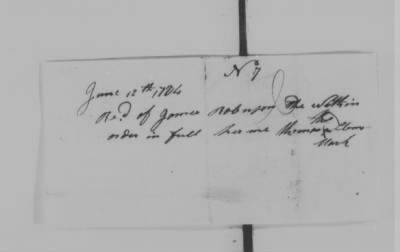 No 7
June 12th 1784
Recd of James Robinson The Within
order in full for me Thomas
his
Mark